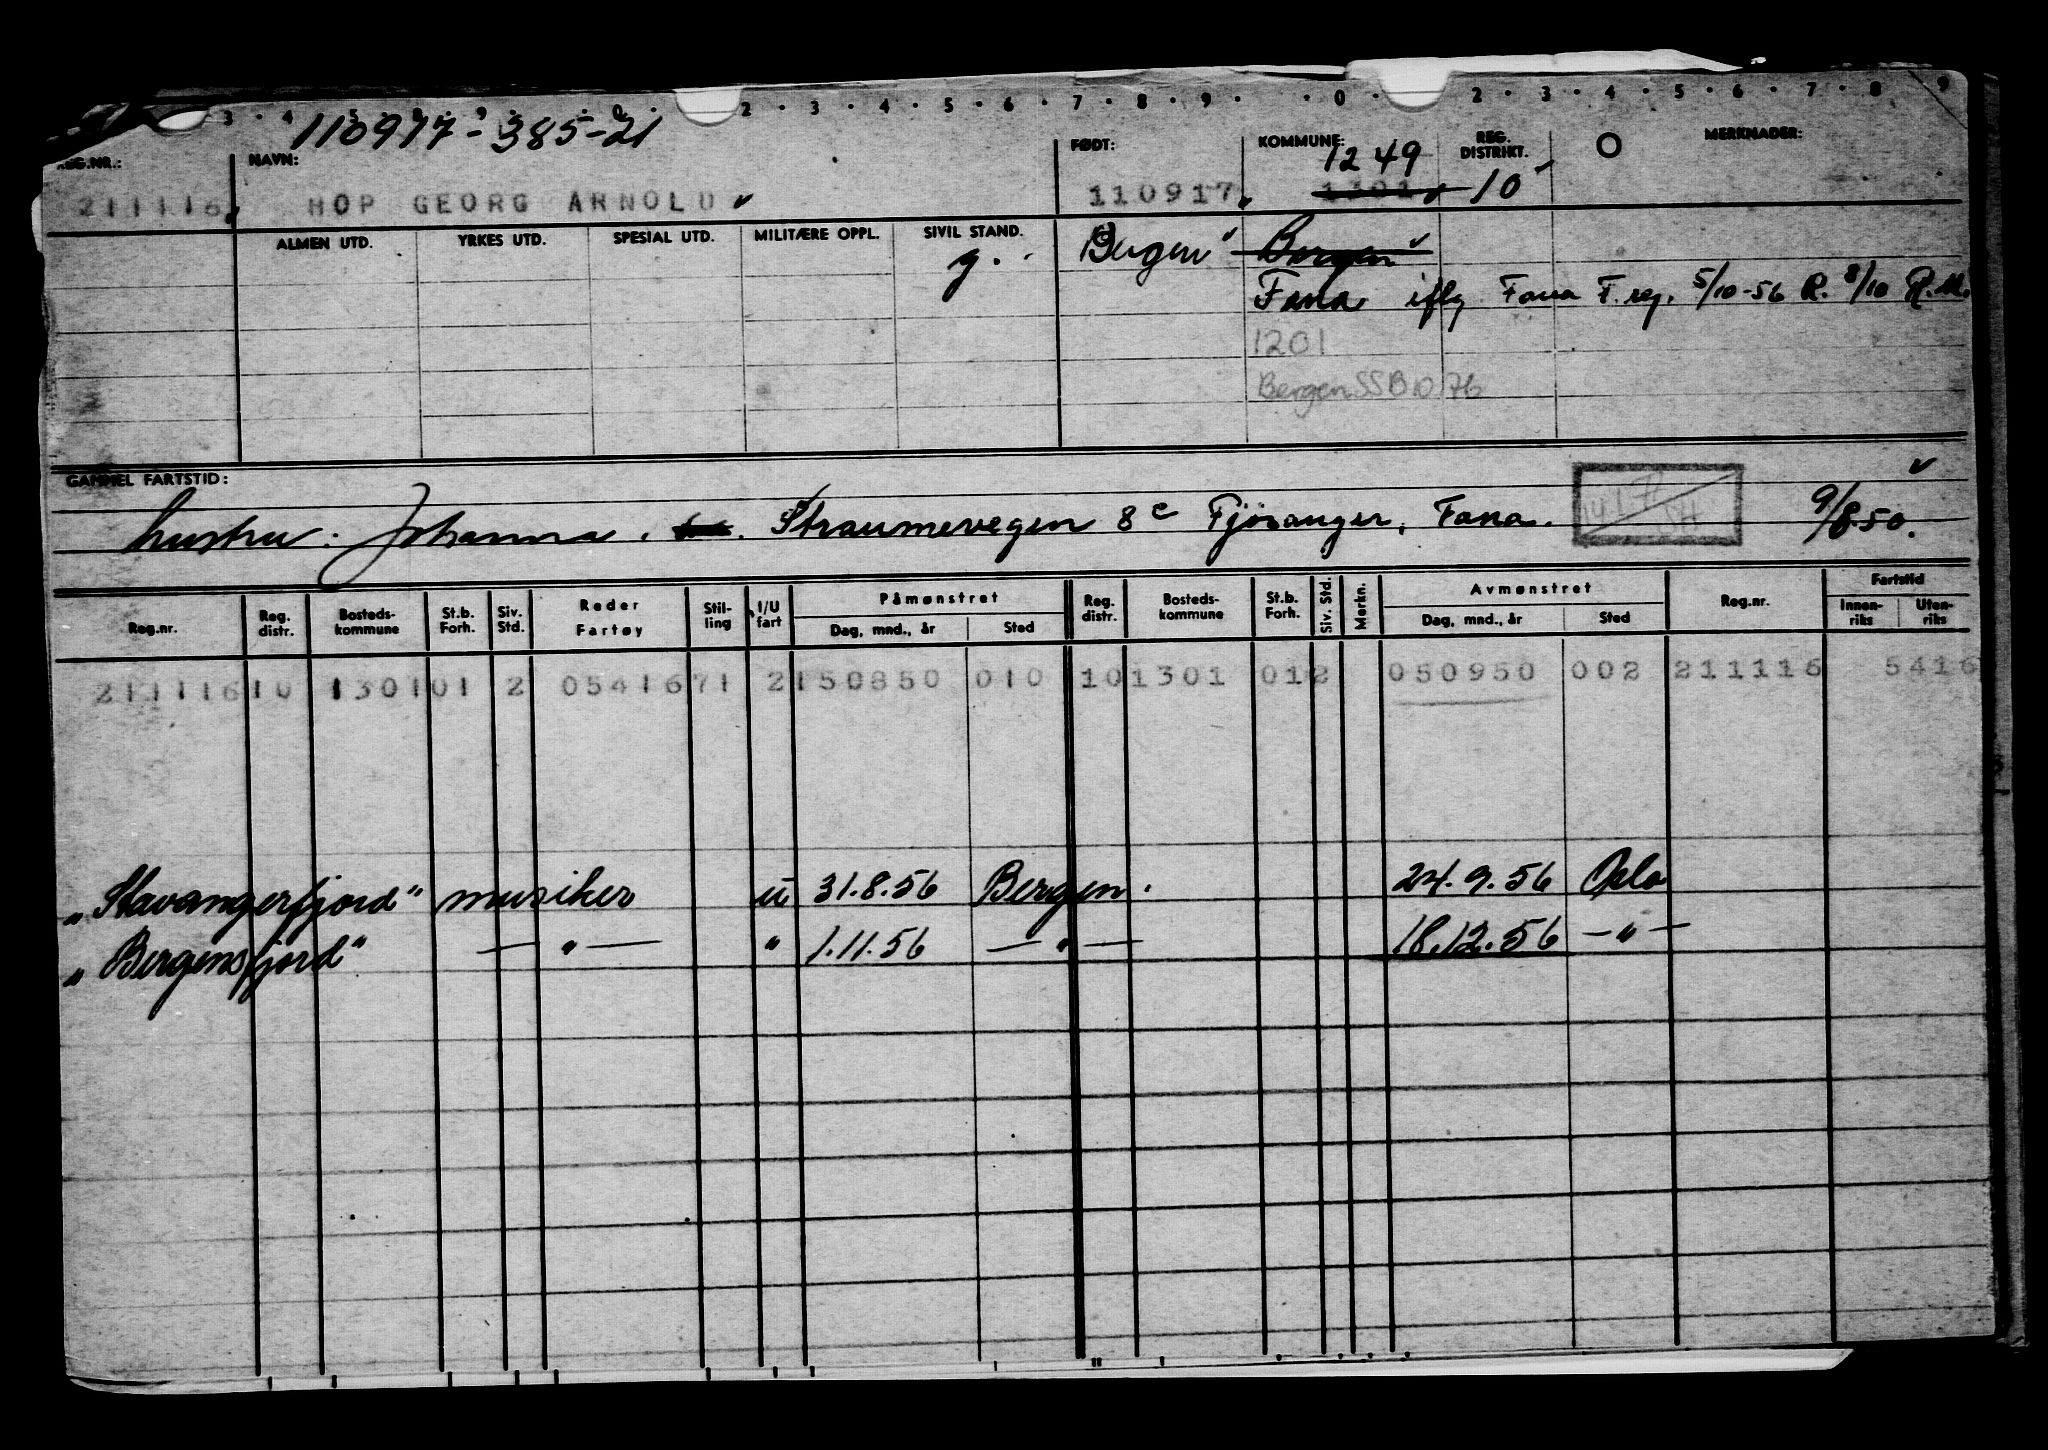 3 · 4 · 5 · 2 · 3 · 4 · 5 · 6 · 7 · 8 · 9 · · 0 · 2 · 3 · 4 · 5 · 6 · 7 · 8 9
110917-385-21
REG.NR.: NAVN: FØDT: KOMMUNE: REG. DISTRIKT. MERKNADER:
1249
211116 HOP GEORG ARNOLD 110917 1301 10
ALMEN UTD. YRKES UTD. SPESIAL UTD. MILITÆRE OPPL. SIVIL STAND.
g. Bergen Bergen
Fana iflg Fana F.reg. 5/10-56 R. 8/10 R.M.
1201
Bergen SSB 10 76
GAMMEL FARTSTID:
hustru: Johanna. Straumevegen 8c Fjösanger, Fana. 9/8.50.
Reg.nr. Reg. distr. Bosteds- kommune St.b. Forh. Siv. Std. Reder Fartøy Stil- ling I/U fart Påmønstret Dag, mnd., år Sted Reg. distr. Bosteds- kommune St.b. Forh. Siv. Std. Merkn. Avmønstret Dag, mnd., år Sted Reg.nr. Fartstid Innen- riks Uten- riks
211116 10 1301 01 2 0541671 2 150850 010 10 1301 01 2 050950 002 211116 5416
„Stavangerfjord" musiker u 31.8.56 Bergen. 24.9.56 Oslo
„Bergensfjord" — " — " 1.11.56 — " — 18.12.56 — " —